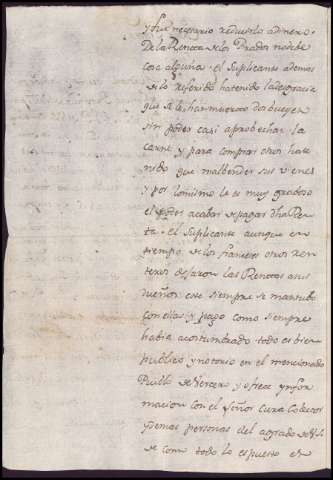 y fue necesario reducirlo a dinero.
De la Renta de los Prados no debe
cosa alguna. el Suplicante ademas
de lo referido ha tenido la desgracia
que se le han muerto dos bueyes
sin poder casi aprobechar la
carne y para comprar otros ha te
nido que malbender sus vienes
y por lo mismo le es muy gravoso
el poder acabar de pagar dha Ren
ta. el Suplicante aunque en
tiempo de los franceses otros ren
teros dejaron las Rentas a sus
dueños este siempre se mantubo
con ellas y pago como siempre
habia acostumbrado todo es bien
publico y notorio en el mencionado
Pueblo de Hercero y ofrece ynfor
macion con el Señor Cura
y demas personas del agrado de
de como todo lo espuesto es